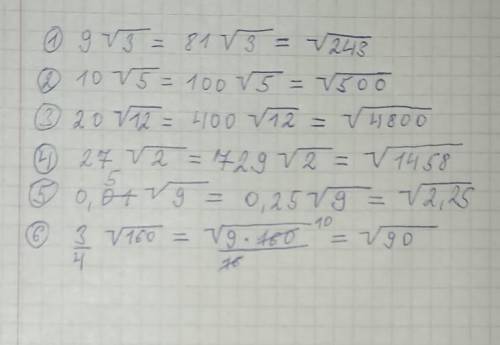 ① 9√3 = 81√3 = √243
② 10√5 = 100√5 = √500
③ 20√12 = 400√12 = √4800
④ 27√2 = 729√2 = √1458
⑤ 0,5√9 = 0,25√9 = √2,25
⑥ 3/4 √160 = √9·160/16 10 = √90